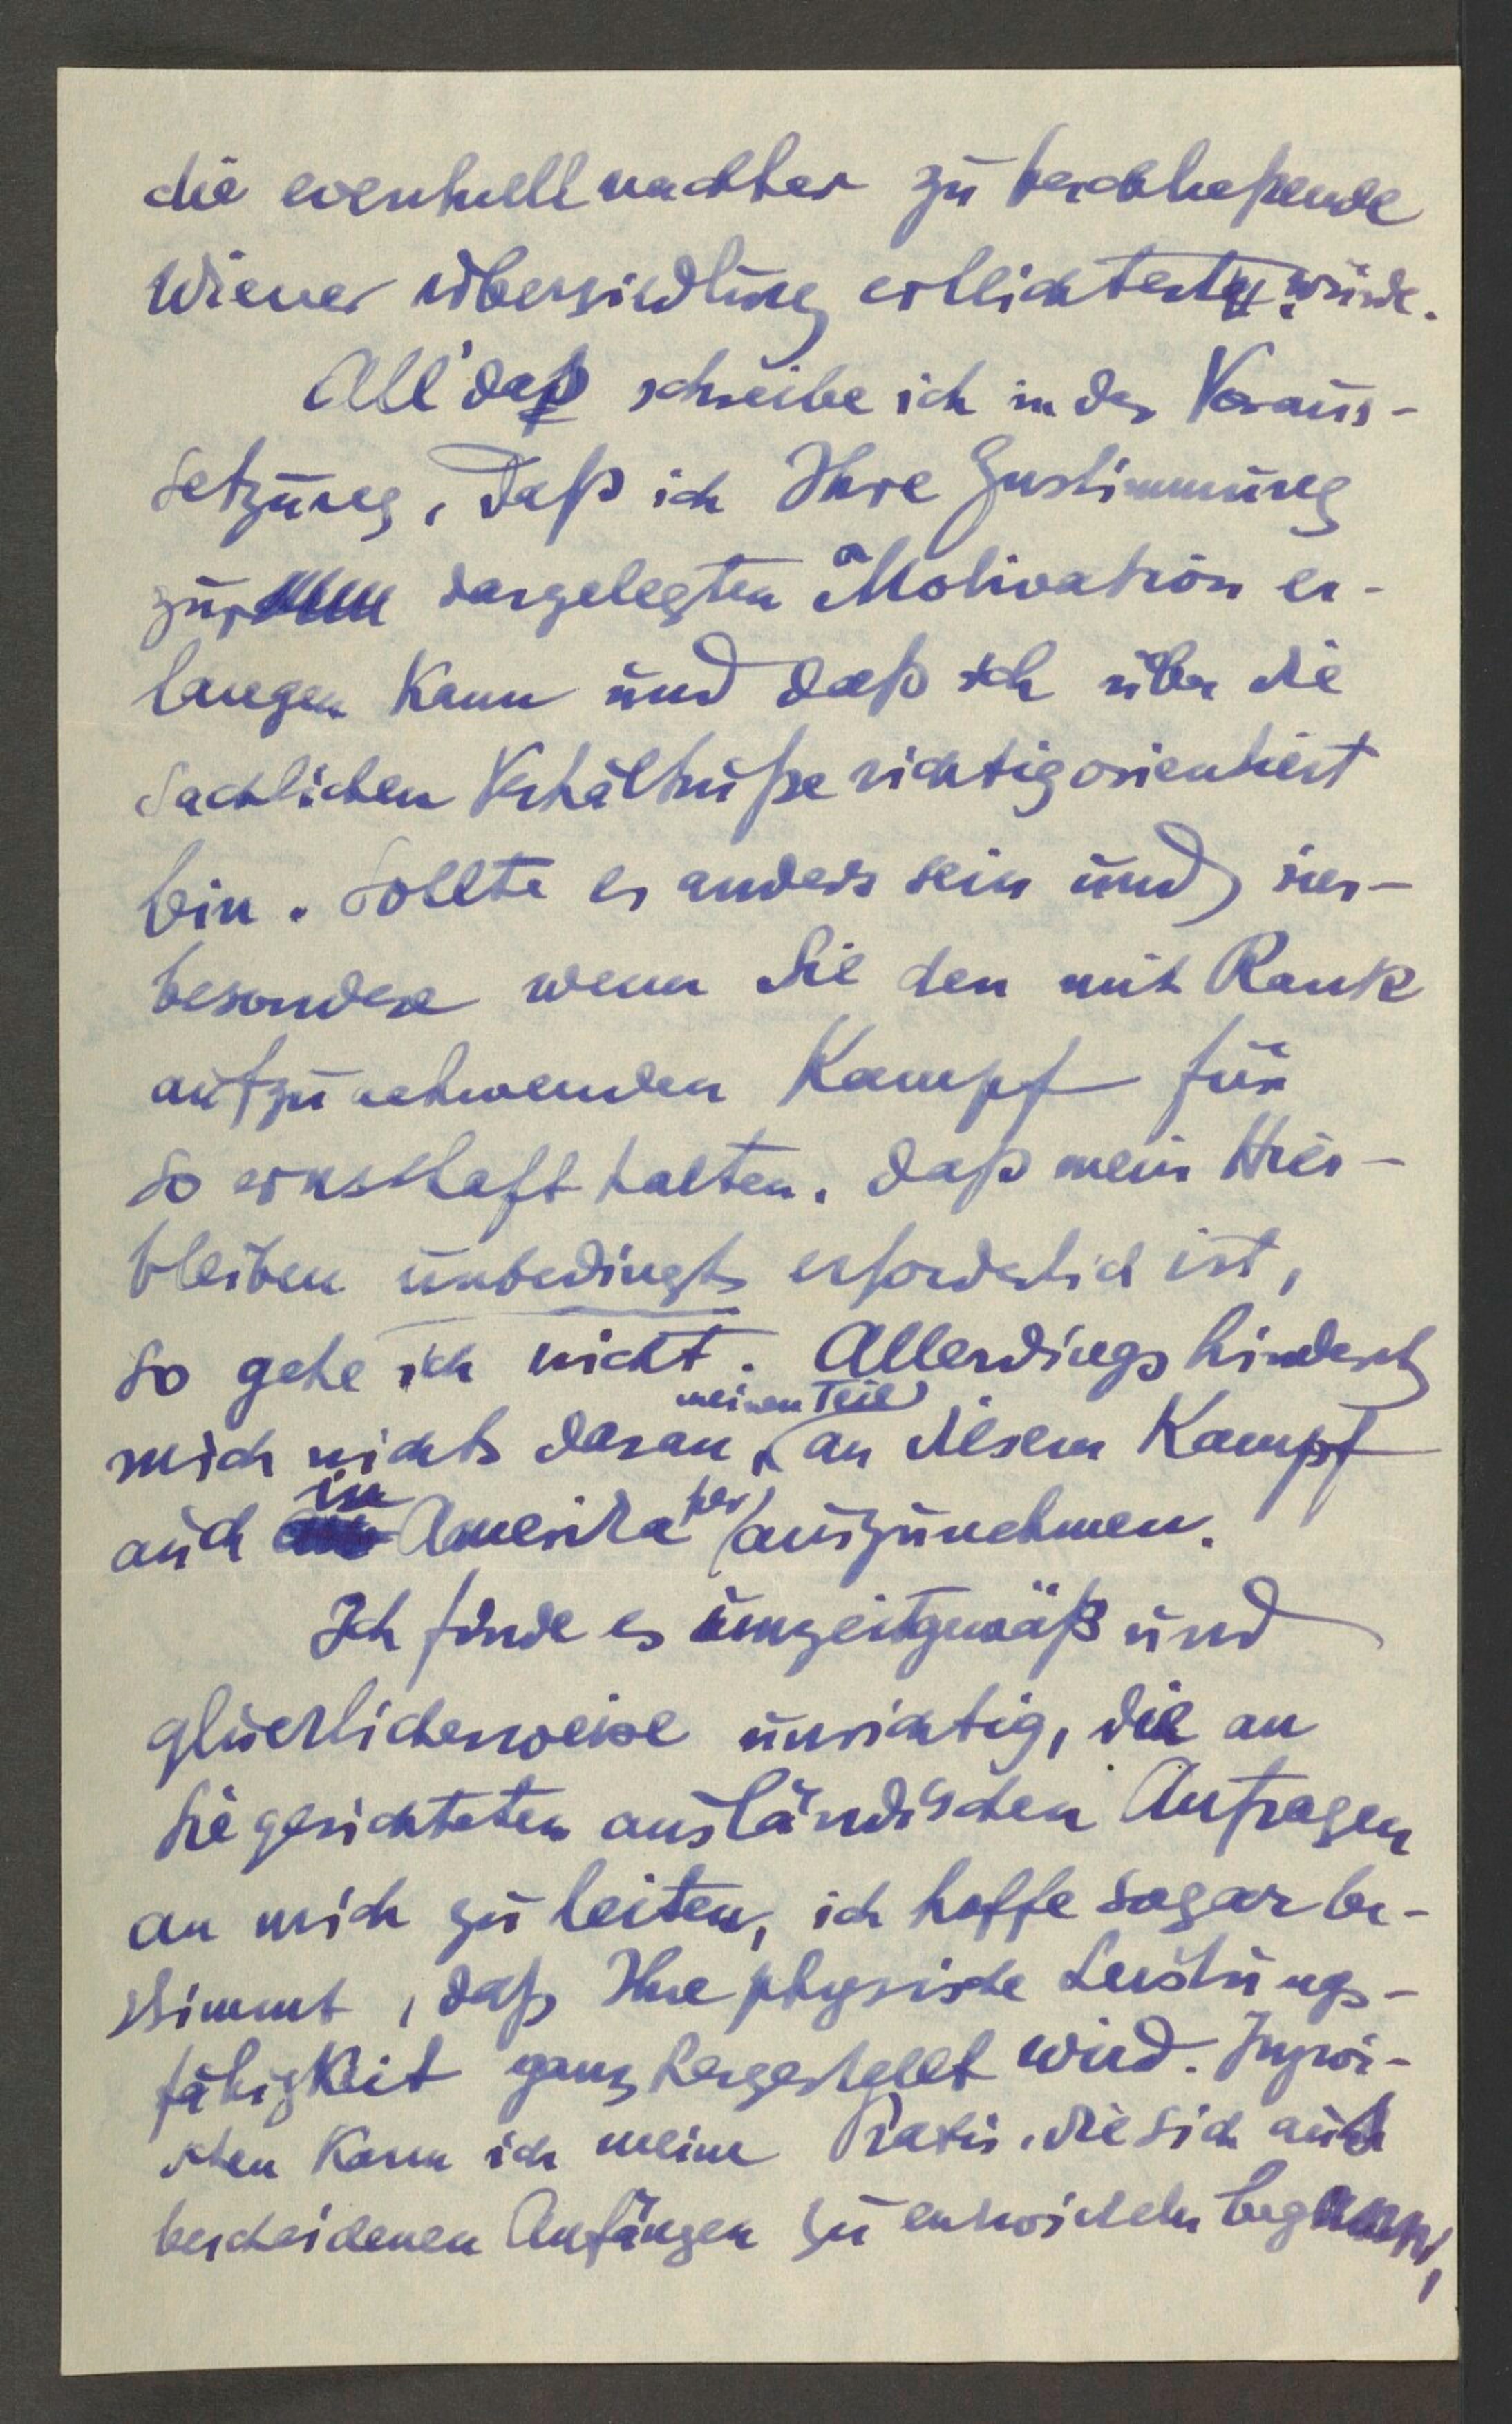 die eventuell nachher zu beschließende
Wiener Übersiedlung erleichtert würde.
All' daß schreibe ich in der Voraus-
setzung, daß ich Ihre Zustimmung
zur dargelegten Motivation er-
langen kann und daß ich über die
sachlichen Verhältniße richtig orientiert
bin. Sollte es anders sein und ins-
besondere wenn Sie den mit Rank
aufzunehmenden Kampf für
so ernsthaft halten, daß mein Hier-
bleiben unbedingt erforderlich ist,
so gehe ich nicht. Allerdings hindert
mich nichts daran, meinen Teil an diesem Kampf
auch in Amerika her auszunehmen.
Ich finde es unzeitgemäß und
glücklicherweise unrichtig, die an
Sie gerichteten ausländischen Anfragen
an mich zu leiten, ich hoffe sogar be-
stimmt, daß Ihre physische Leistungs-
fähigkeit ganz hergestellt wird. Inzwi-
schen kann ich meine Praxis, die sich aus
bescheidenen Anfängen zu entwickeln